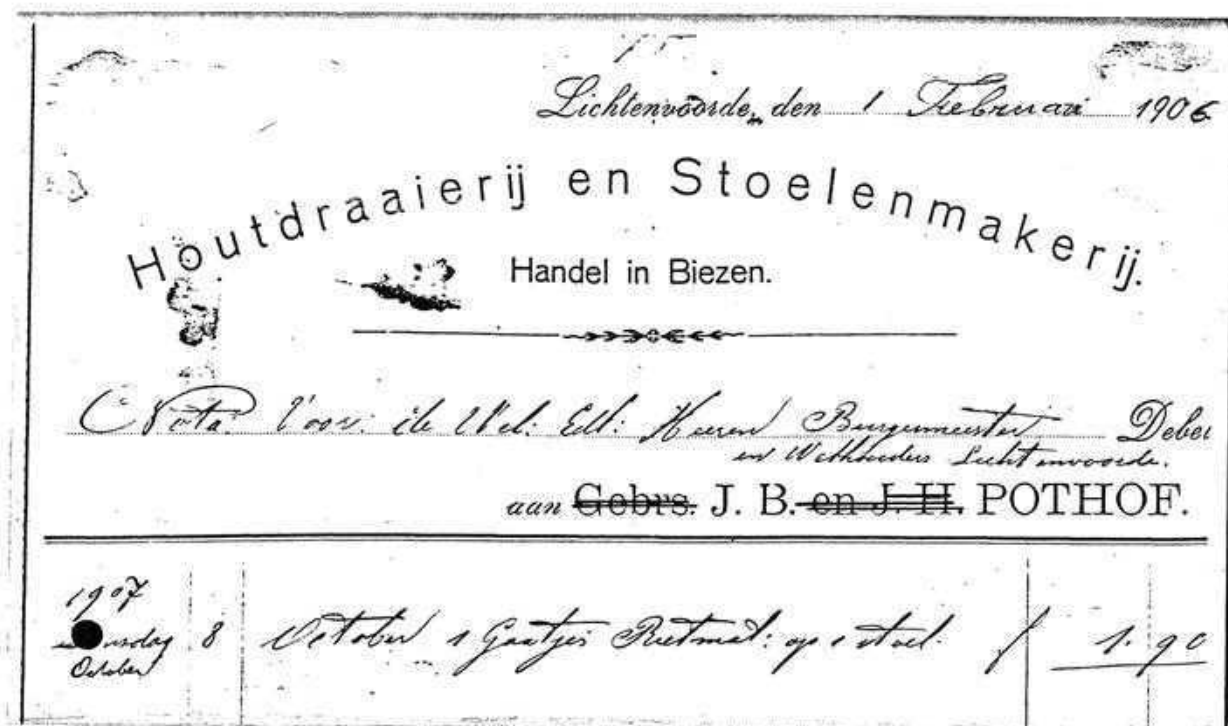 Lichtenvoorde, den 1 Februari 1906
Houtdraaierij en Stoelenmakerij.
Handel in Biezen.
Nota Voor: de Wel: Edl: Heeren Burgemeester Debet
en Wethouders Lichtenvoorde.
aan Gebrs. J. B. en J. H. POTHOF.
1907
8 October 1 Gaatjes Rietmat: op 1 stoel. f 1.90
October